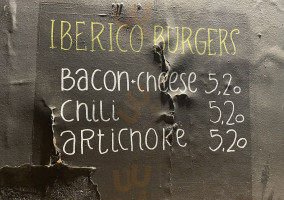 IBERICO BURGERS
Bacon+cheese 5,20
chili 5,20
artichoke 5,20